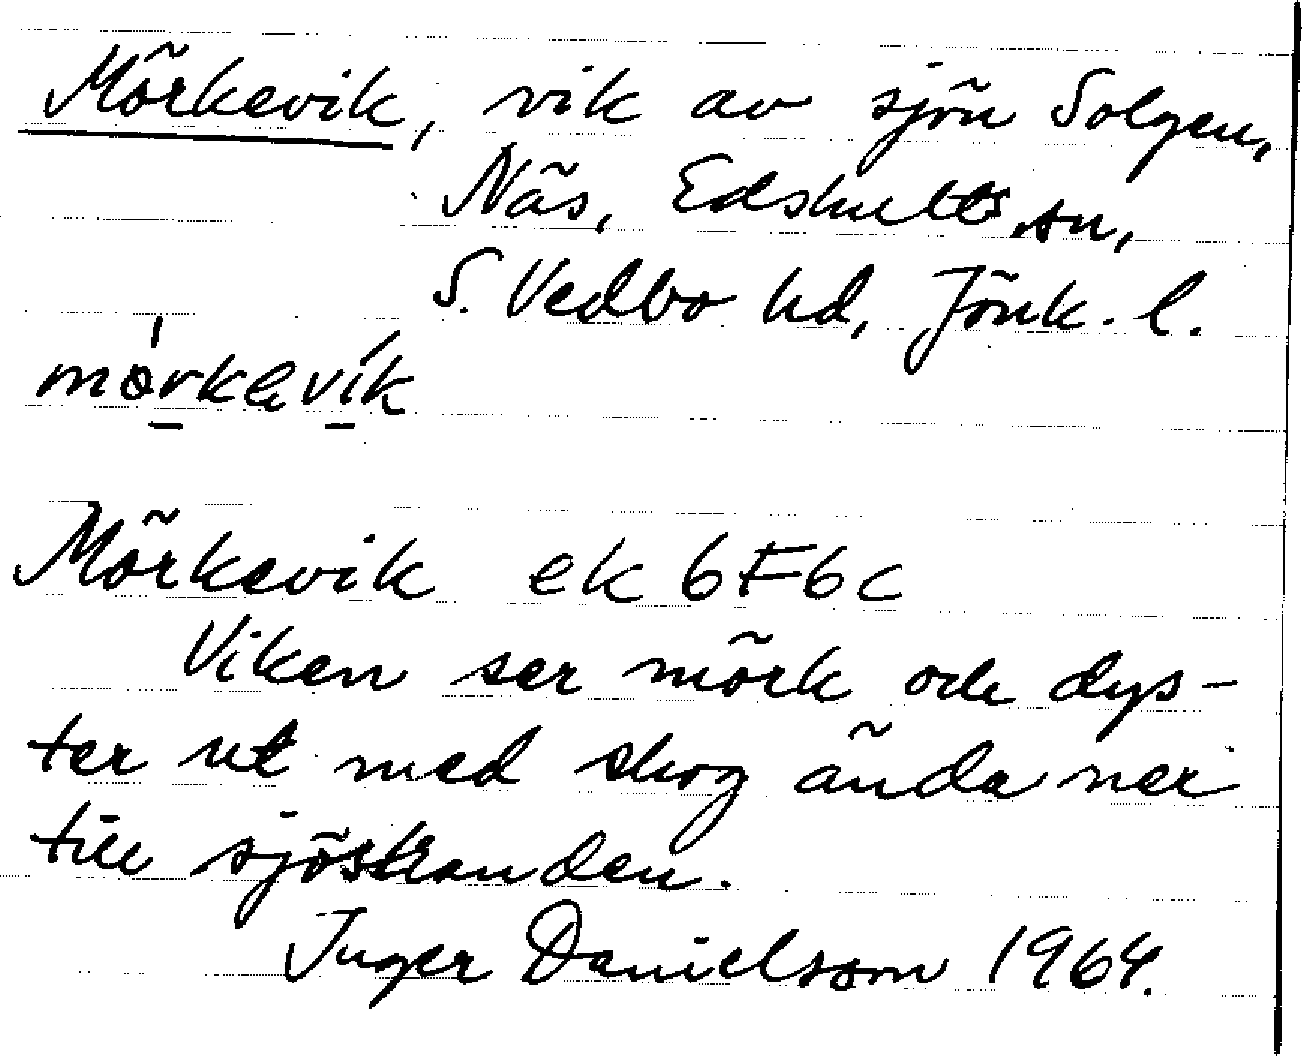 Mörkevik, vik av sjön Solgen,
Näs, Edshults sn,
S. Vedbo hd, Jönk. l.
mörkevik
Mörkevik ek 6F6c
Viken ser mörk och dys-
ter ut med skog ända ner
till sjöstranden.
Inger Danielsson 1964.